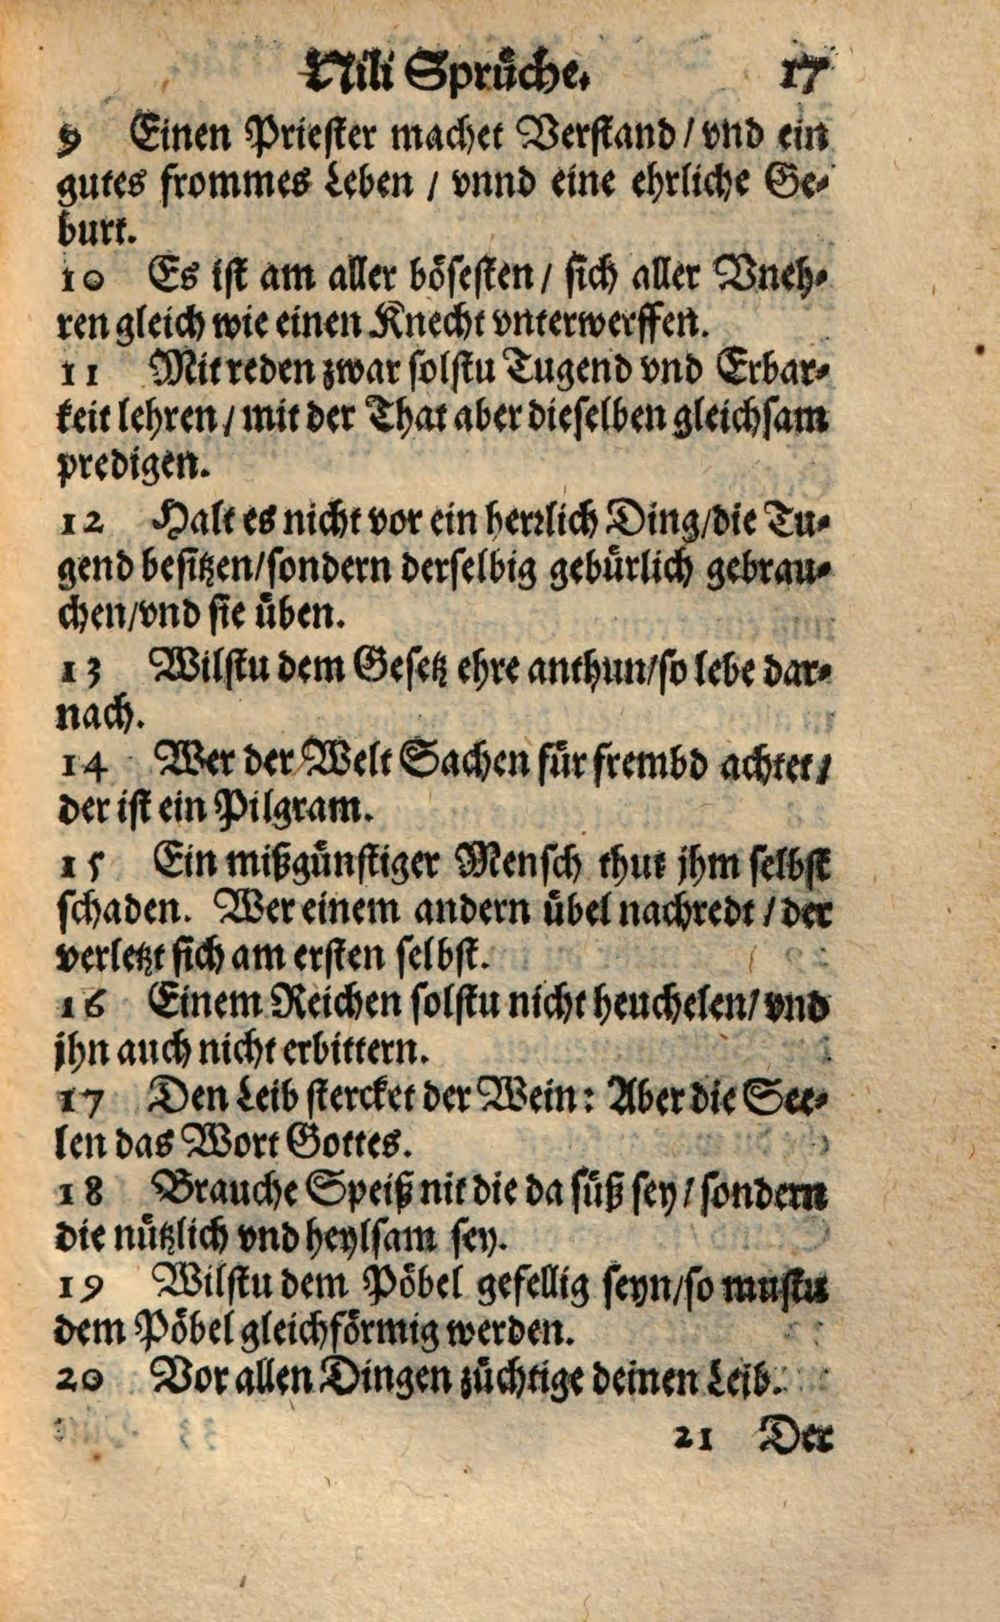 Nili Sprüche. 17
9 Einen Priester machet Verstand / vnd ein
gutes frommes Leben / vnnd eine ehrliche Ge-
burt.
10 Es ist am aller bösesten / sich aller Vneh-
ren gleich wie einen Knecht vnterwerffen.
11 Mit reden zwar solstu Tugend vnd Erbar-
keit lehren / mit der That aber dieselben gleichsam
predigen.
12 Halt es nicht vor ein herrlich Ding / die Tu-
gend besitzen / sondern derselbig gebürlich gebrau-
chen / vnd sie üben.
13 Wilstu dem Gesetz ehre anthun / so lebe dar-
nach.
14 Wer der Welt Sachen für frembd achtet /
der ist ein Pilgram.
15 Ein mißgünstiger Mensch thut jhm selbst
schaden. Wer einem andern übel nachredt / der
verletzt sich am ersten selbst.
16 Einem Reichen solstu nicht heuchelen / vnd
jhn auch nicht erbittern.
17 Den Leib stercket der Wein: Aber die See-
len das Wort Gottes.
18 Brauche Speiß nit die da süß sey / sondern
die nützlich vnd heylsam sey.
19 Wilstu dem Pöbel gefellig seyn / so mustu
dem Pöbel gleichförmig werden.
20 Vor allen Dingen züchtige deinen Leib.
21 Der